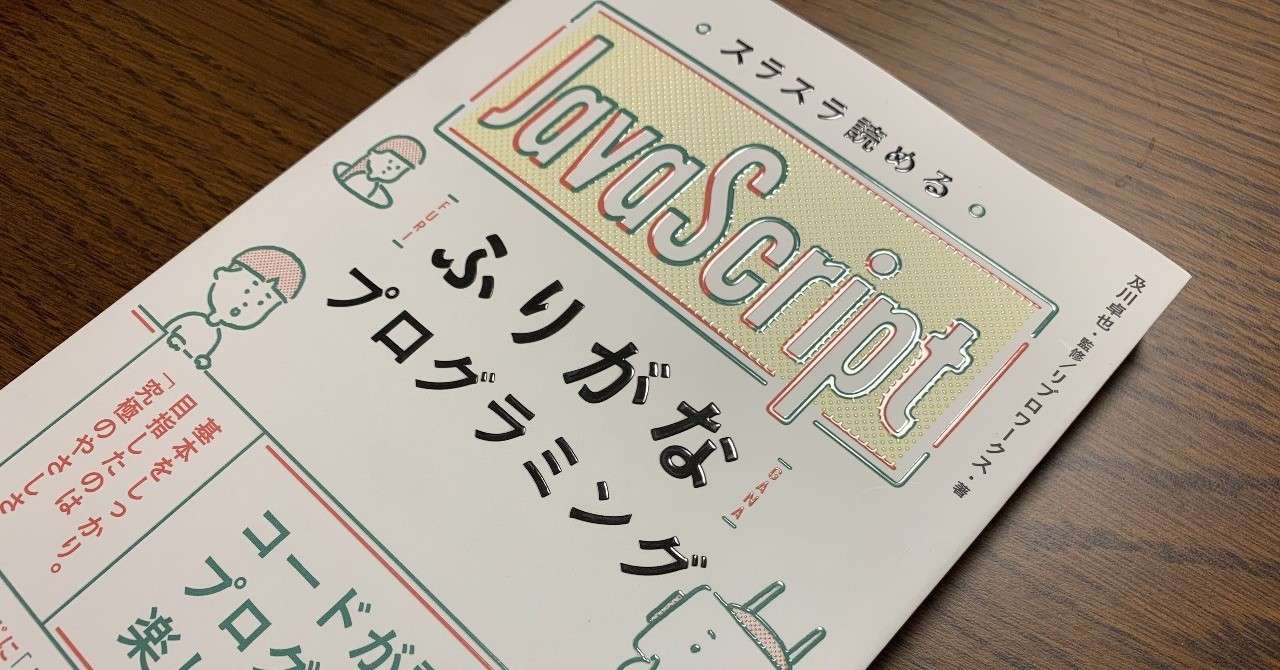 スラスラ読める
JavaScript
FURI
ふりがな
GANA
プログラミング
及川卓也・監修/リブロワークス・著
基本をしっかり。
「目指したのは
究極のやさしさ
コードが
プログ
楽し